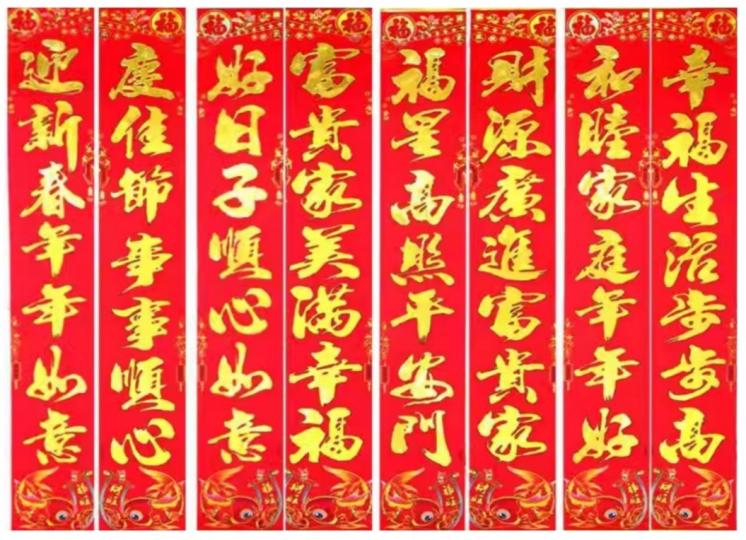 福
迎新春年年如意
福
慶佳節事事順心
福
好日子順心如意
福
富貴家美滿幸福
福
福星高照平安門
福
財源廣進富貴家
福
和睦家庭年年好
福
幸福生活步步高